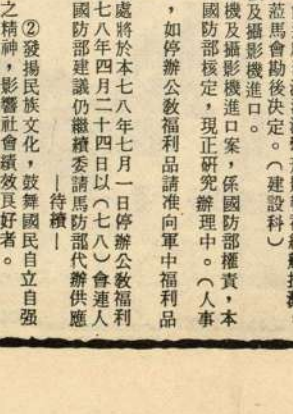 蒞馬會勘後決定。(建設科)
及攝影機進口。
機及攝影機進口案,係國防部權責,本
國防部核定,現正研究辦理中。(人事
,如停辦公敎福利品請准向軍中福利品
處將於本七八年七月一日停辦公敎福利
七八年四月二十四日以(七八)會連人
國防部建議仍繼續委請馬防部代辦供應
—待續—
②發揚民族文化,鼓舞國民自立自强
之精神,影響社會績效良好者。